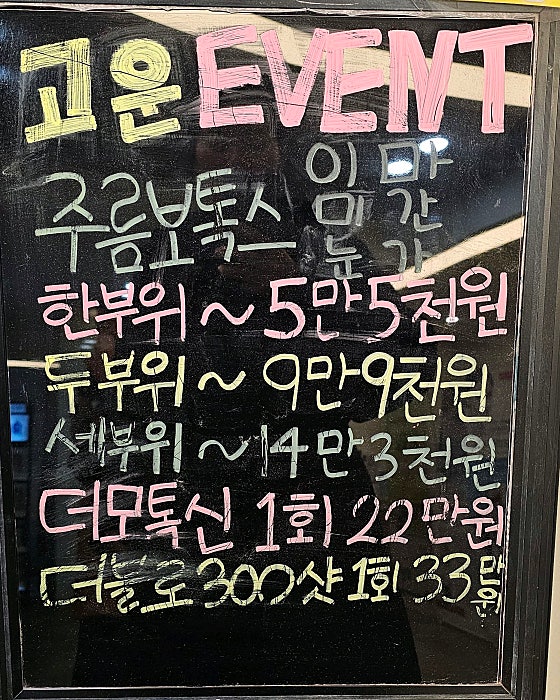 고운 EVENT
주름보톡스
이마
미간
눈가
한부위 ~ 5만 5천원
두부위 ~ 9만 9천원
세부위 ~ 14만 3천원
더모톡신 1회 22만원
더블로 300샷 1회 33만원